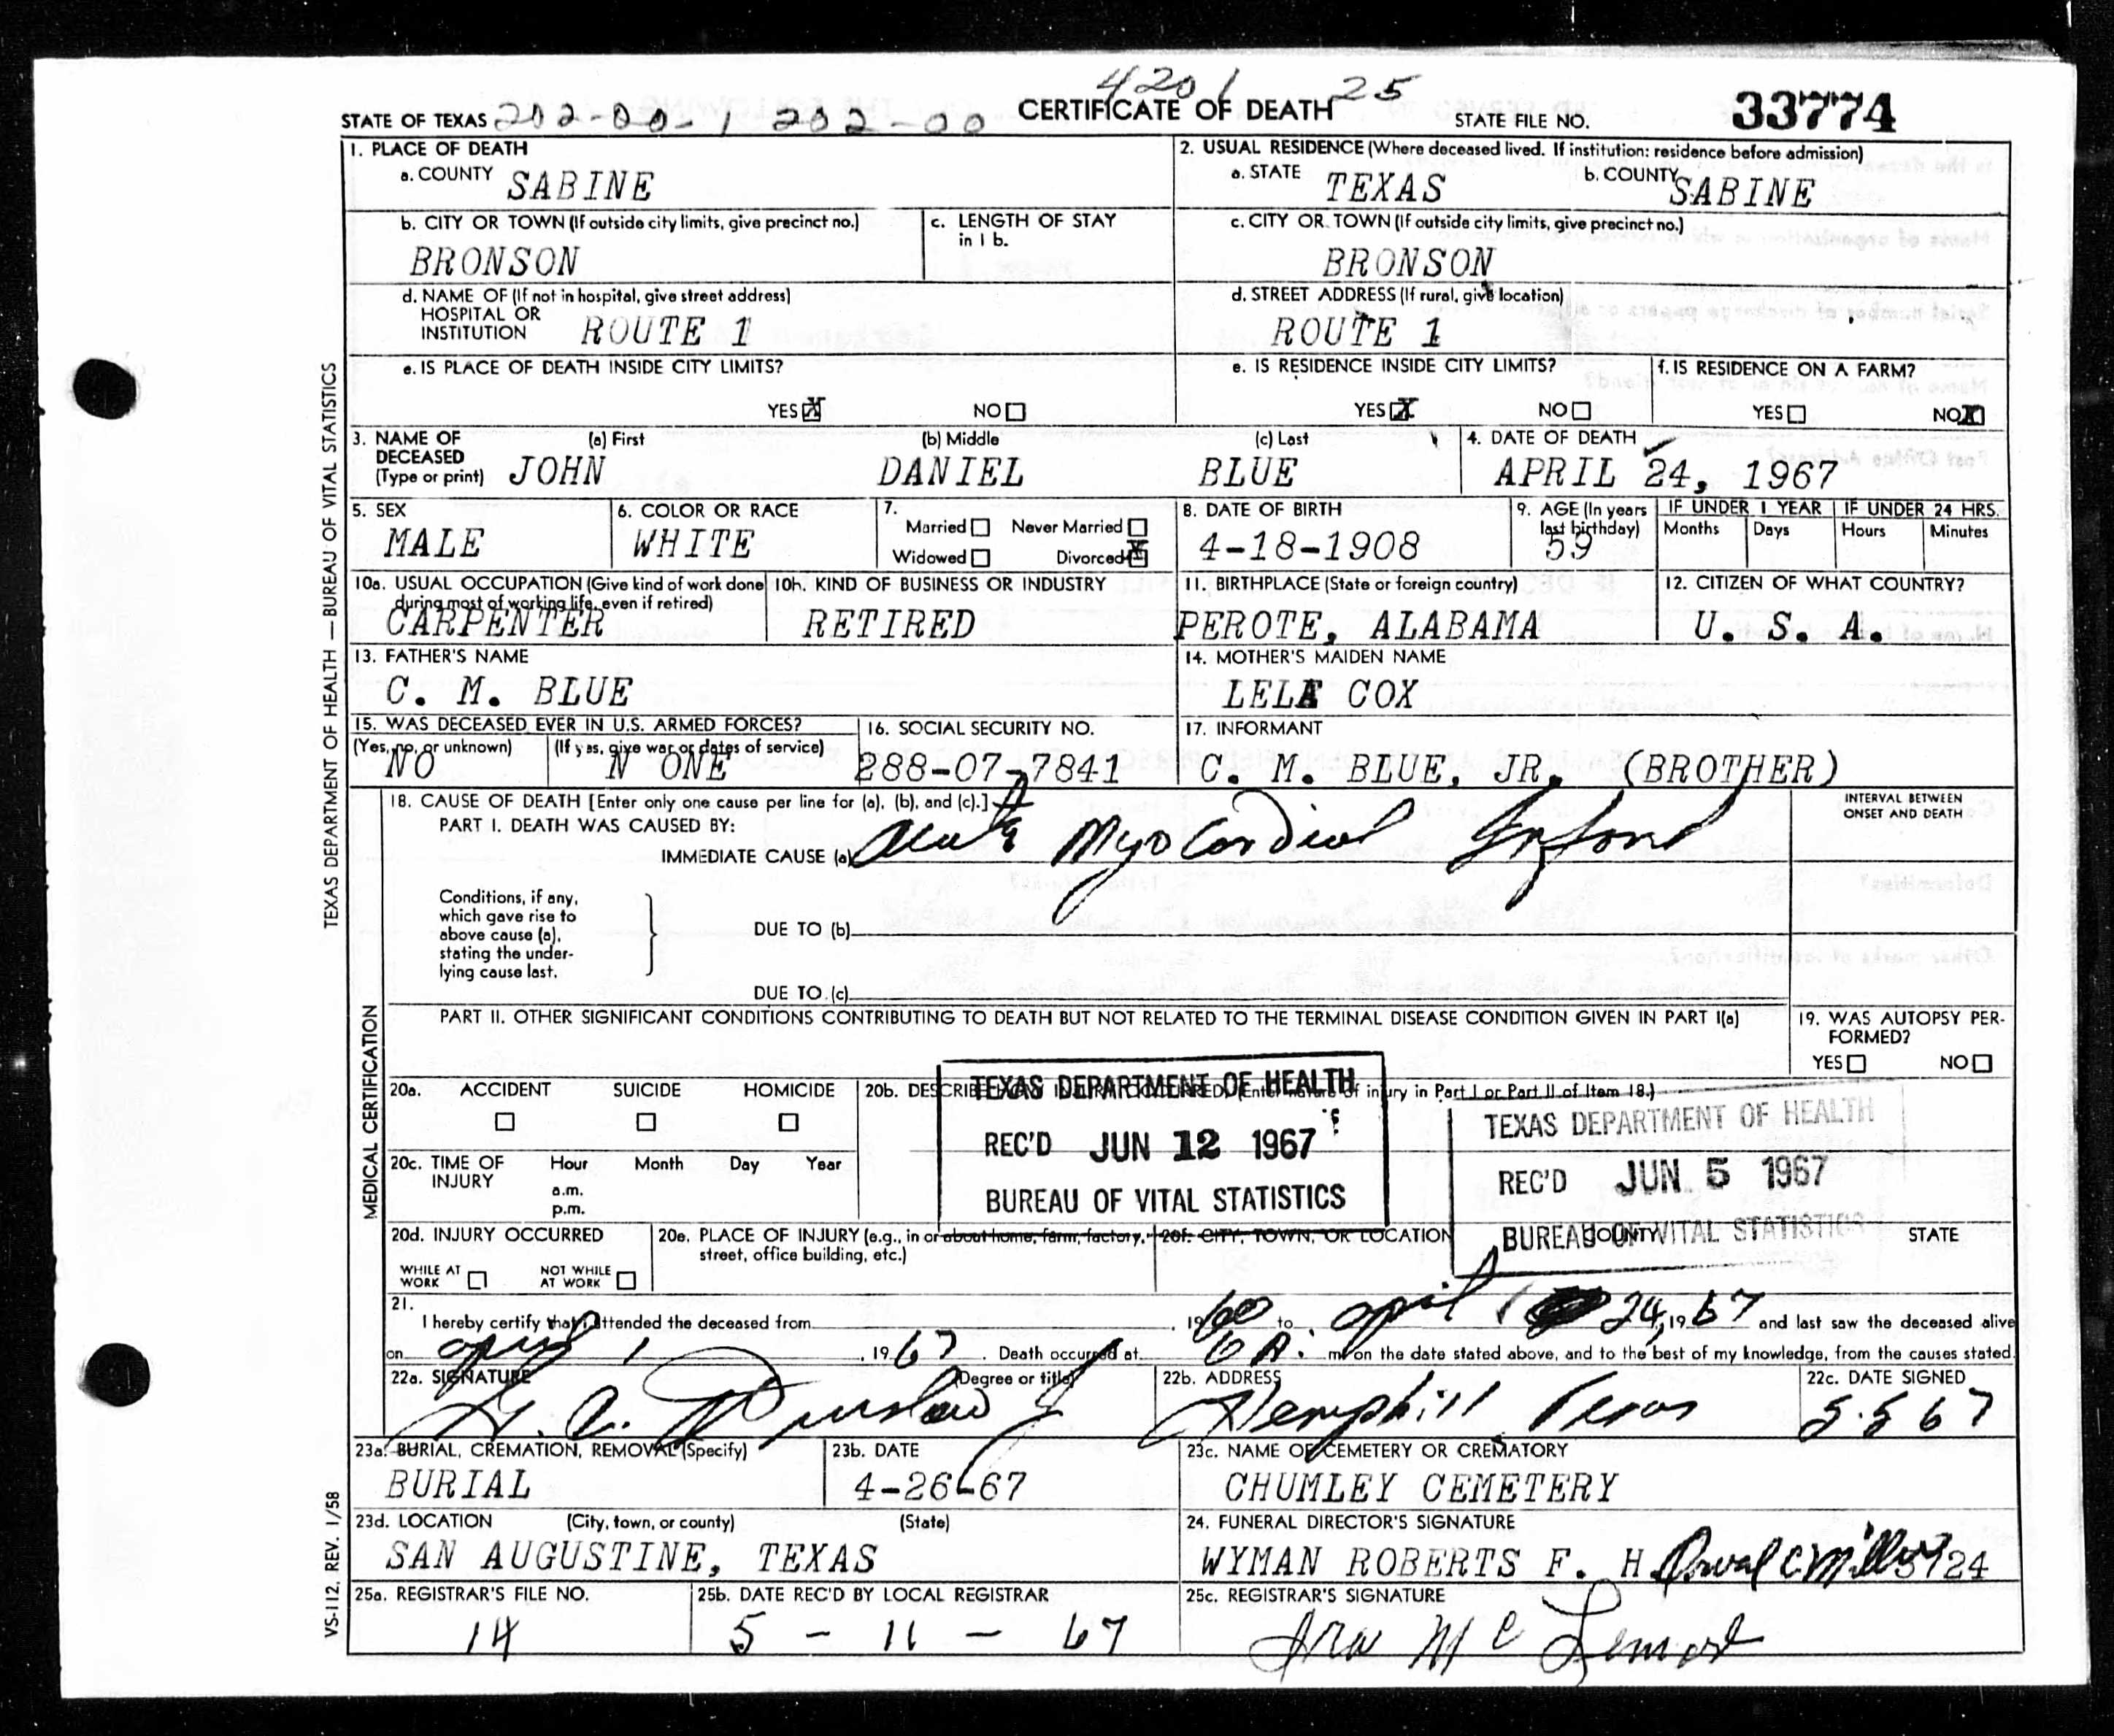 4201 25
STATE OF TEXAS 202-00-1 202-00 CERTIFICATE OF DEATH STATE FILE NO. 33774
1. PLACE OF DEATH
a. COUNTY SABINE
2. USUAL RESIDENCE (Where deceased lived. If institution: residence before admission)
a. STATE TEXAS b. COUNTY SABINE
b. CITY OR TOWN (If outside city limits, give precinct no.)
BRONSON
c. LENGTH OF STAY
in 1 b.
c. CITY OR TOWN (If outside city limits, give precinct no.)
BRONSON
d. NAME OF (If not in hospital, give street address)
HOSPITAL OR
INSTITUTION ROUTE 1
d. STREET ADDRESS (If rural, give location)
ROUTE 1
e. IS PLACE OF DEATH INSIDE CITY LIMITS?
YES X NO
e. IS RESIDENCE INSIDE CITY LIMITS?
YES X NO
f. IS RESIDENCE ON A FARM?
YES NO X
3. NAME OF (a) First (b) Middle (c) Last
DECEASED
(Type or print) JOHN DANIEL BLUE
4. DATE OF DEATH
APRIL 24, 1967
5. SEX
MALE
6. COLOR OR RACE
WHITE
7.
Married Never Married
Widowed Divorced X
8. DATE OF BIRTH
4-18-1908
9. AGE (In years
last birthday)
59
IF UNDER 1 YEAR
Months Days
IF UNDER 24 HRS.
Hours Minutes
10a. USUAL OCCUPATION (Give kind of work done
during most of working life, even if retired)
CARPENTER
10h. KIND OF BUSINESS OR INDUSTRY
RETIRED
11. BIRTHPLACE (State or foreign country)
PEROTE, ALABAMA
12. CITIZEN OF WHAT COUNTRY?
U. S. A.
13. FATHER'S NAME
C. M. BLUE
14. MOTHER'S MAIDEN NAME
LELA COX
15. WAS DECEASED EVER IN U.S. ARMED FORCES?
(Yes, no, or unknown) (If yes, give war or dates of service)
NO N ONE
16. SOCIAL SECURITY NO.
288-07-7841
17. INFORMANT
C. M. BLUE, JR. (BROTHER)
18. CAUSE OF DEATH [Enter only one cause per line for (a), (b), and (c).]
PART I. DEATH WAS CAUSED BY:
IMMEDIATE CAUSE (a) Acute Myocardial
INTERVAL BETWEEN
ONSET AND DEATH
Conditions, if any,
which gave rise to
above cause (a),
stating the under-
lying cause last.
DUE TO (b)
DUE TO (c)
PART II. OTHER SIGNIFICANT CONDITIONS CONTRIBUTING TO DEATH BUT NOT RELATED TO THE TERMINAL DISEASE CONDITION GIVEN IN PART I(a)
19. WAS AUTOPSY PER-
FORMED?
YES NO
20a. ACCIDENT SUICIDE HOMICIDE
20b. DESCRIBE HOW INJURY OCCURRED. (Enter nature of injury in Part I or Part II of Item 18.)
TEXAS DEPARTMENT OF HEALTH
REC'D JUN 12 1967
BUREAU OF VITAL STATISTICS
TEXAS DEPARTMENT OF HEALTH
REC'D JUN 5 1967
BUREAU OF VITAL STATISTICS
20c. TIME OF Hour Month Day Year
INJURY
a.m.
p.m.
20d. INJURY OCCURRED
WHILE AT
WORK
NOT WHILE
AT WORK
20e. PLACE OF INJURY (e.g., in or about home, farm, factory,
street, office building, etc.)
20f. CITY, TOWN, OR LOCATION COUNTY STATE
21.
I hereby certify that I attended the deceased from , 1960 to april 24, 1967 and last saw the deceased alive
on april 1 , 1967 . Death occurred at 6 A. m on the date stated above, and to the best of my knowledge, from the causes stated.
22a. SIGNATURE (Degree or title)
22b. ADDRESS
Hemphill Texas
22c. DATE SIGNED
5-5 67
23a. BURIAL, CREMATION, REMOVAL (Specify)
BURIAL
23b. DATE
4-26-67
23c. NAME OF CEMETERY OR CREMATORY
CHUMLEY CEMETERY
23d. LOCATION (City, town, or county) (State)
SAN AUGUSTINE, TEXAS
24. FUNERAL DIRECTOR'S SIGNATURE
WYMAN ROBERTS F. H.
25a. REGISTRAR'S FILE NO.
14
25b. DATE REC'D BY LOCAL REGISTRAR
5 - 11 - 67
25c. REGISTRAR'S SIGNATURE
Ira McLemore
TEXAS DEPARTMENT OF HEALTH — BUREAU OF VITAL STATISTICS
MEDICAL CERTIFICATION
VS-112, REV. 1/58